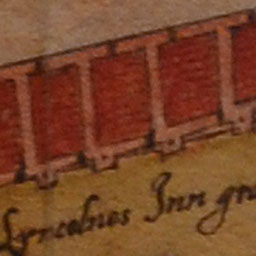 Lyncolnes Inn gr